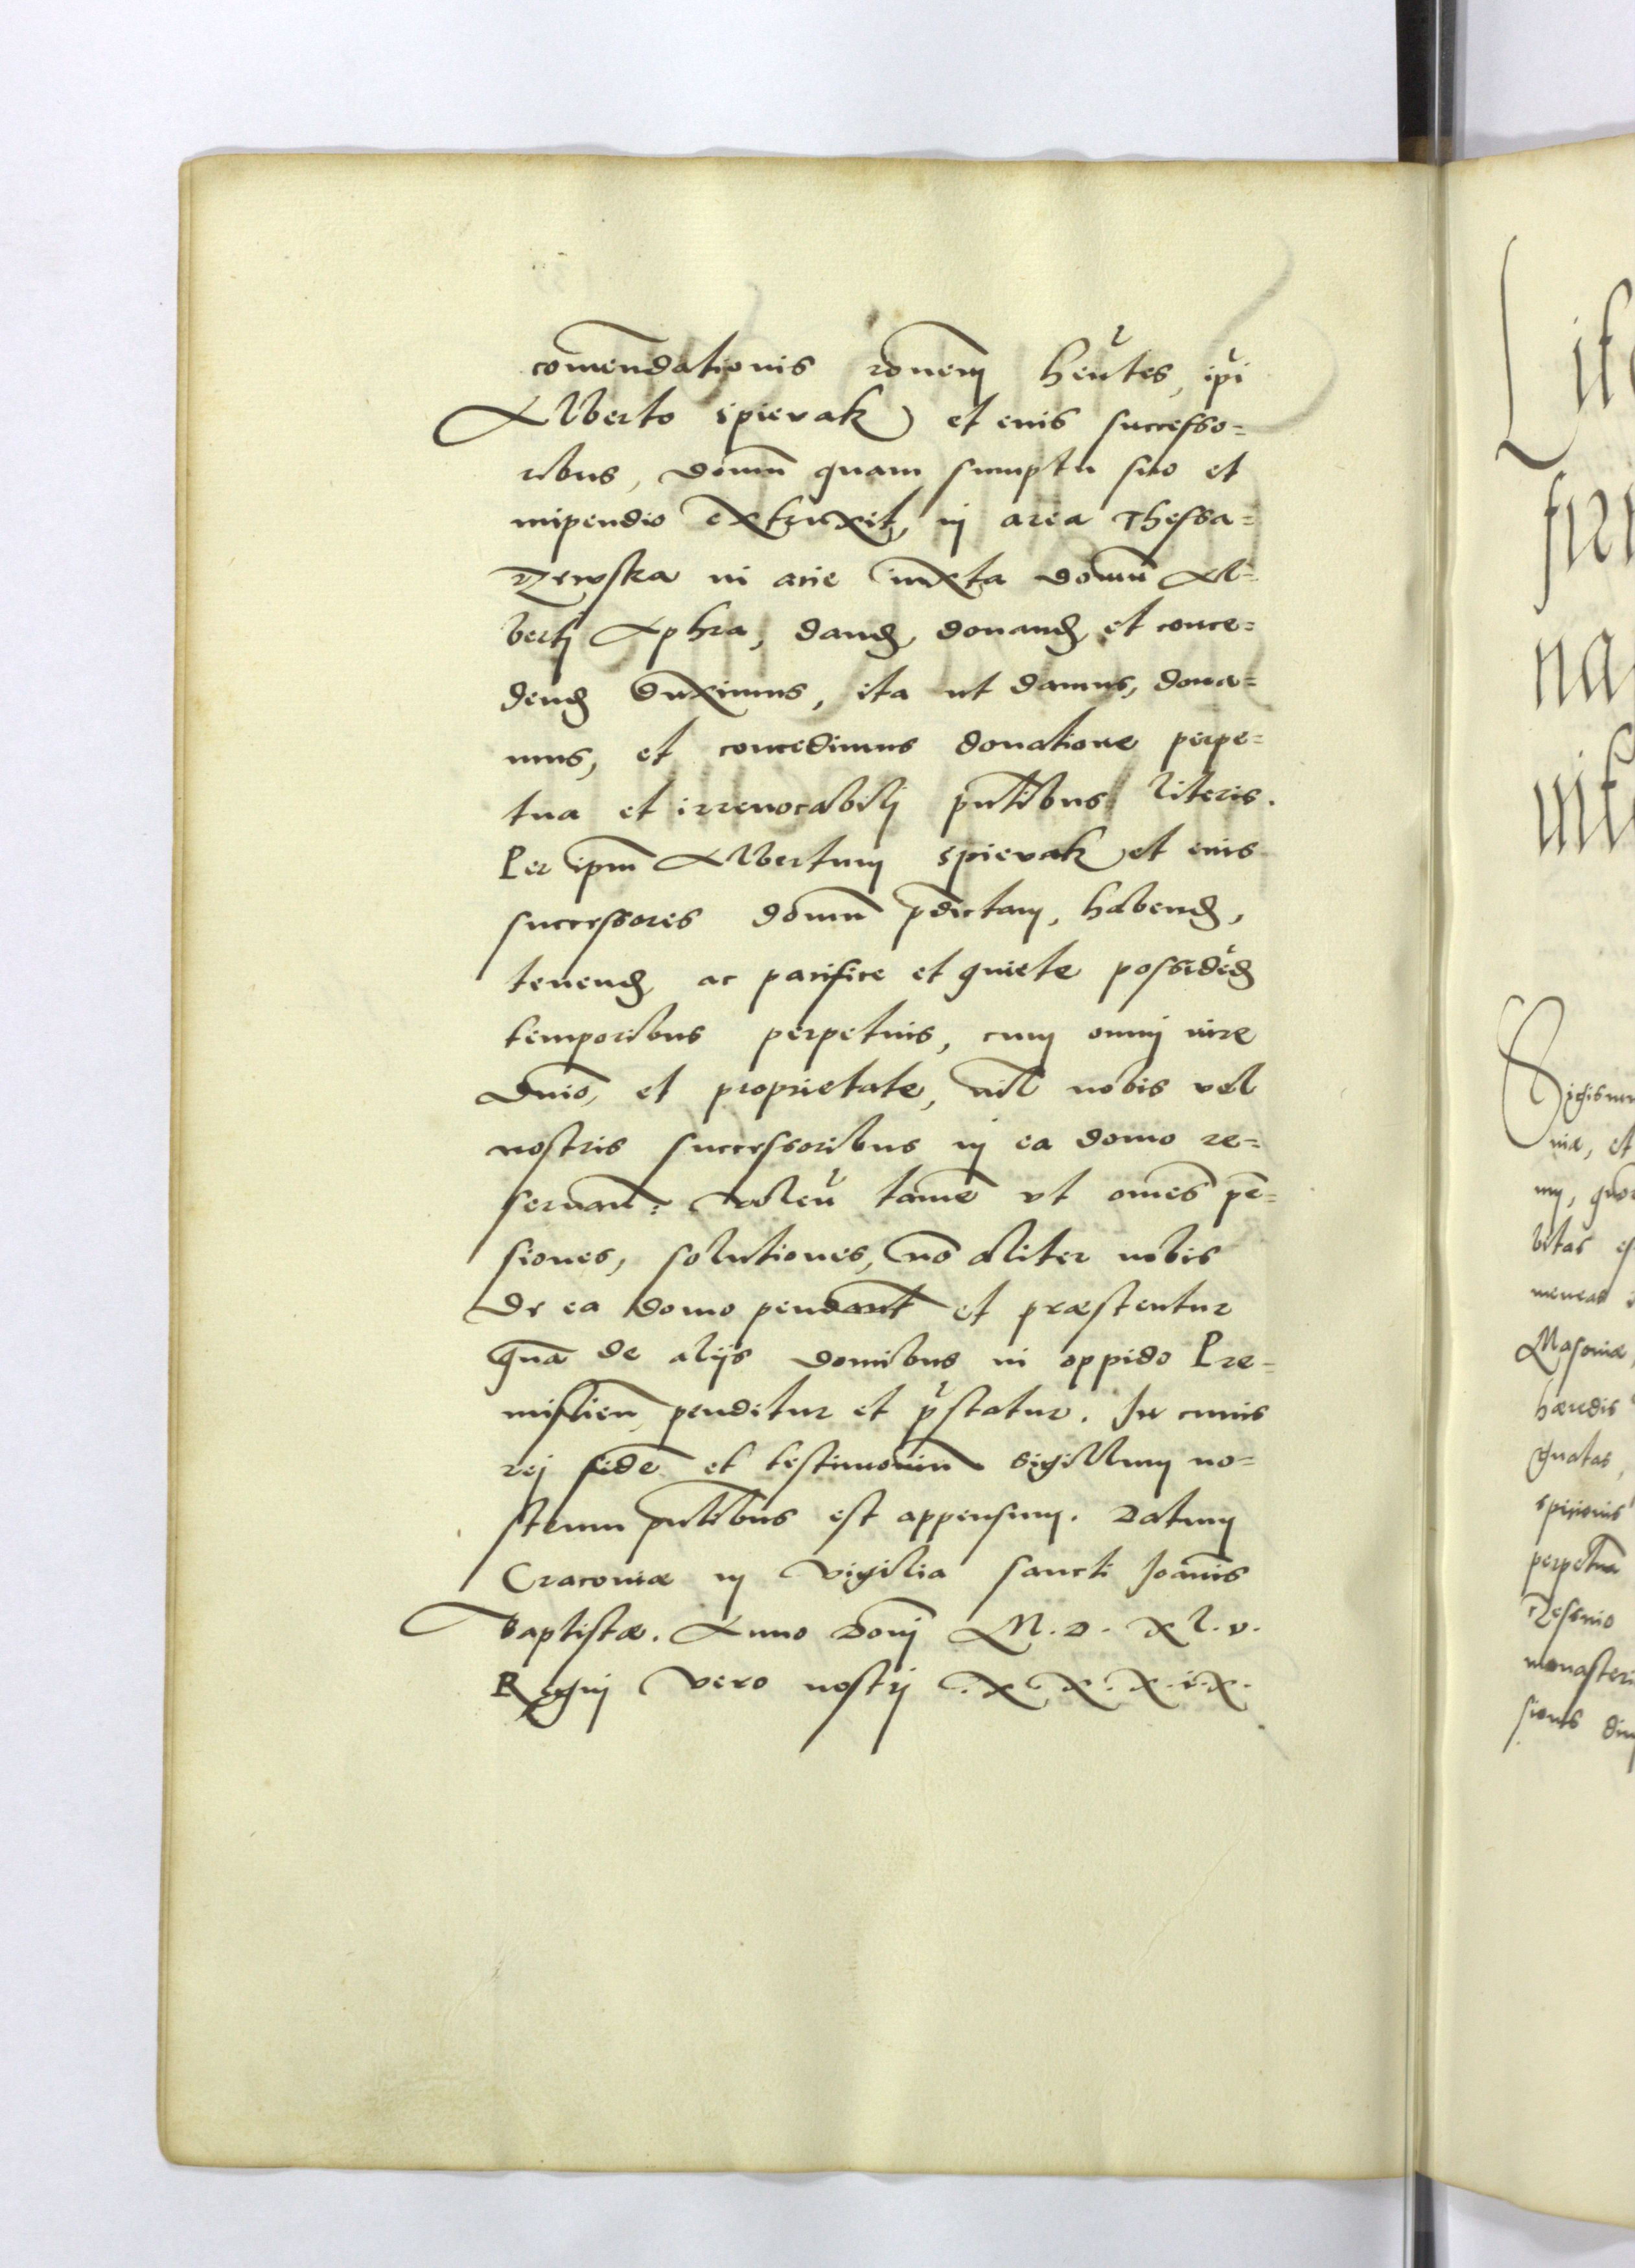 com̄endationis ron̄em hen̄tes, ipi
Alberto Spievak et eius successo=
ribus, domū quam sumptu suo et
inipendio extruxit, in area Thessa=
rzewska in arce iuxta domū Al=
berti Aphra, dand, donand, et conce=
dend duximus, ita ut damus, dona=
mus, et concedimus donatione perpe=
tua et irrevocabilj pn̄tibus literis.
Per ipm̄ Albertum Spievak et eius
successores domū p̄dictam, habend,
tenend, ac pacifice et quiete possidēd
temporibus perpetuis, cum omni iure
Dnīo, et proprietate, nīl nobis vel
nostris successoribus in ea domo re=
servan̄. Volen̄ tamē vt om̄es pē=
siones, solutiones, nō aliter nobis
de ea domo pendant et præstentur
quā de alijs domibus in oppido Pre=
mislien̄, penditur et p̄statur. In cuius
rej fidē et testimoniū sigillum no=
strum pn̄tibus est appensum. Datum
Cracoviæ in vigilia sancti Joan̄is
Baptistæ. Anno Domj M.D.XL.v.
Regnj vero nostrj .X X.X.i.X.
Lit
Sigism
niæ, et
bitas es
Masoviæ
hæredis
gnatas,
perpetua
monasteri